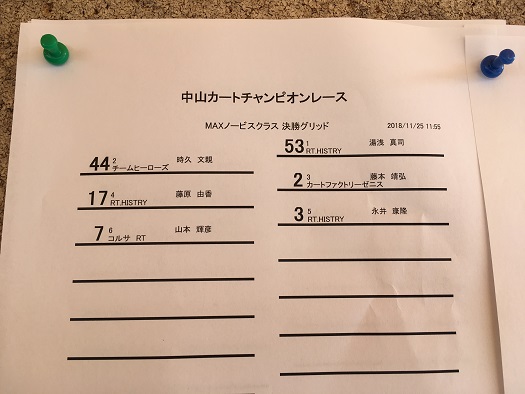 中山カートチャンピオンレース
MAXノービスクラス 決勝グリッド 2018/11/25 11:55
53 1 湯浅 真司
RT.HISTRY
44 2 時久 文親
チームヒーローズ
2 3 藤本 靖弘
カートファクトリーゼニス
17 4 藤原 由香
RT.HISTRY
3 5 永井 康隆
RT.HISTRY
7 6 山本 輝彦
コルサ RT